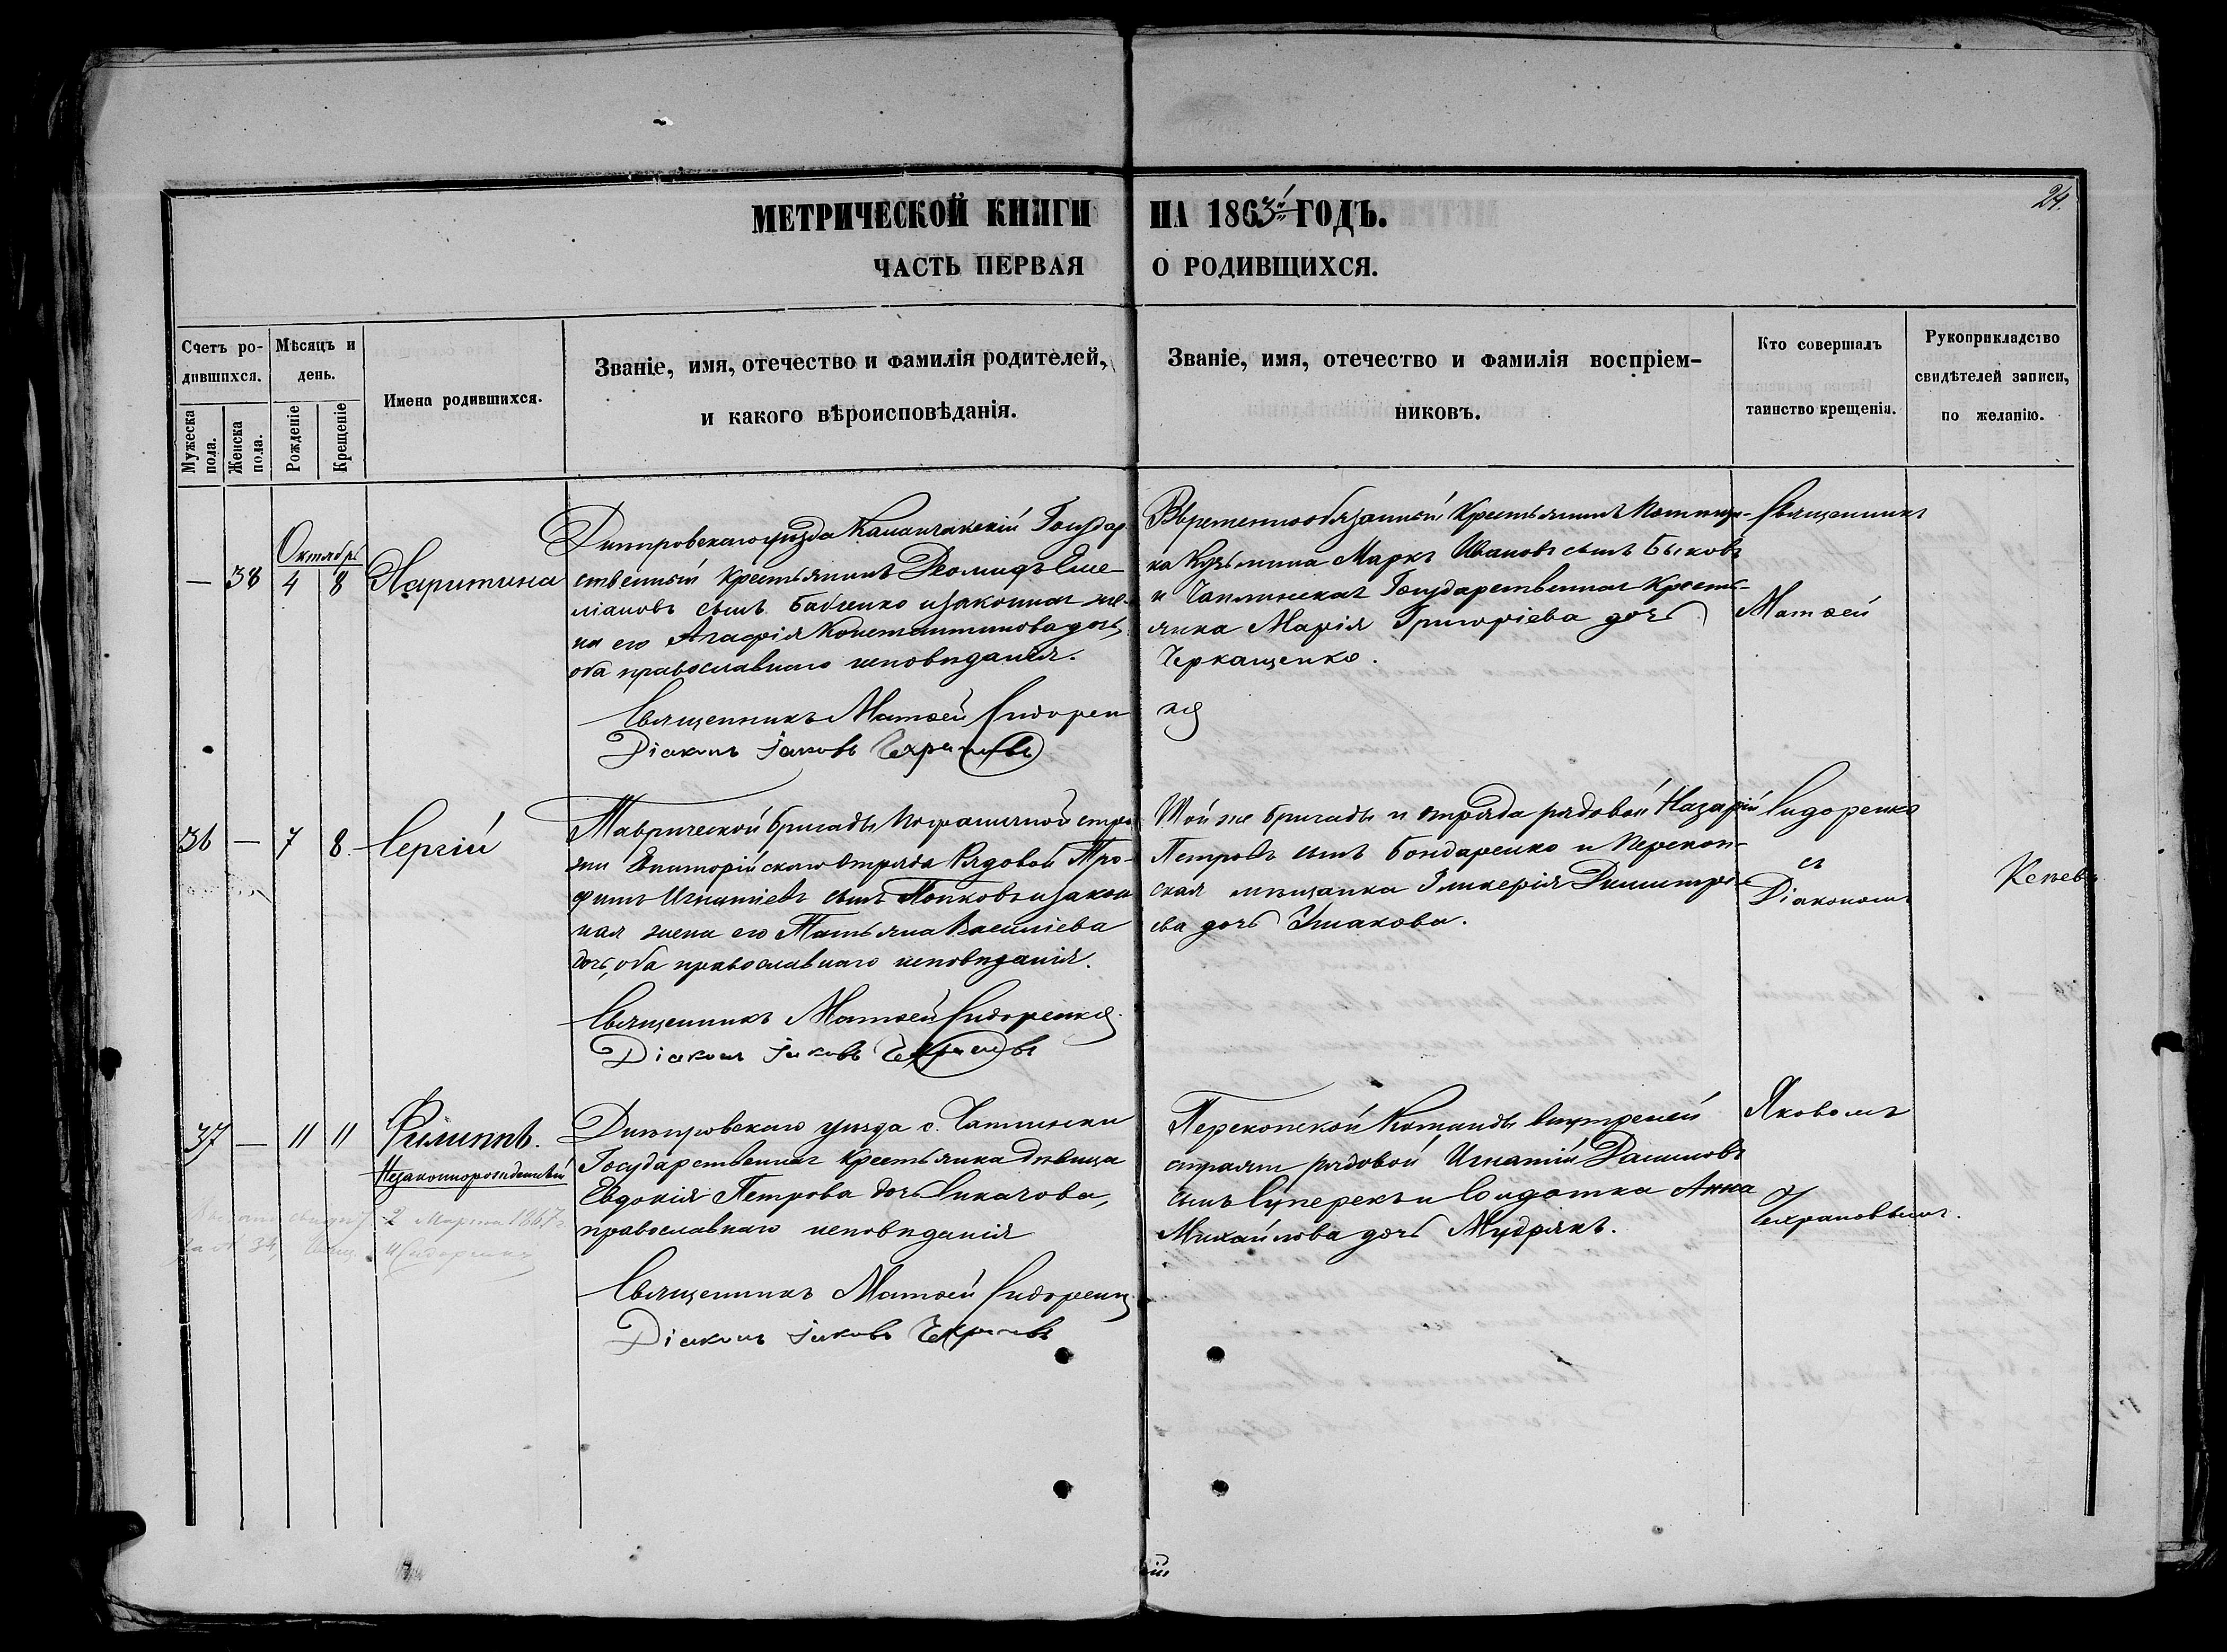 24.
МЕТРИЧЕСКОЙ КНИГИ НА 1863й ГОДЪ.
ЧАСТЬ ПЕРВАЯ О РОДИВШИХСЯ.
Счетъ родившихся.
Мужеска пола.
Женска пола.
Мѣсяцъ и день.
Рожденіе
Крещеніе
Имена родившихся.
Званіе, имя, отечество и фамилія родителей,
и какого вѣроисповѣданія.
Званіе, имя, отечество и фамилія воспріем-
никовъ.
Кто совершалъ
таинство крещенія.
Рукоприкладство
свидѣтелей записи,
по желанію.
Октябрь
— 38 4 8 Харитина
Днѣпровскаго уѣзда Каланчакскій Государ-
ственный Крестьянинъ Діомидъ Еме-
ліановъ сынъ Бабченко и законная же-
на его Агафія Константинова дочь,
оба православнаго исповѣданія.
Священникъ Матѳей Сидорен
ко
Діаконъ Іаковъ Чехрановъ
Временнообязанный Крестьянинъ
Кузьмина Маркъ Ивановъ сынъ Быковъ
и Чаплинская Государственная Кресть-
янка Марія Григоріева дочь
Черкащенко.
Священникъ
Матѳей
36 — 7 8 Сергій
Таврической бригады Пограничной стра
жи Евпаторійскаго Отряда Рядовой Тро-
фимъ Игнатіевъ сынъ Попковъ и закон
ная жена его Татьяна Василіева
дочь, оба православнаго исповѣданія.
Священникъ Матѳей Сидоренко.
Діаконъ Іаковъ Чехрановъ
Той же бригады и отряда рядовой Назарій
Петровъ сынъ Бондаренко и Перекоп-
ская мѣщанка Гликерія Димитрі-
ева дочь Ушакова.
Сидоренко
съ
Діакономъ
37 — 11 11 Филиппъ.
Незаконнорожденный
Днѣпровскаго уѣзда с. Чаплинки
Государственная Крестьянка дѣвица
Евдокія Петрова дочь
православнаго исповѣданія
Священникъ Матѳей Сидоренко
Діаконъ Іаковъ Чехрановъ
Перекопской Команды внутреней
стражи рядовой Игнатій
сынъ Суперекъ и Солдатка Анна
Михайлова дочь Мудрякъ.
Яковомъ
Чехрановымъ.
2 Марта 1867 г.
за № 34, Свящ. Сидоренко